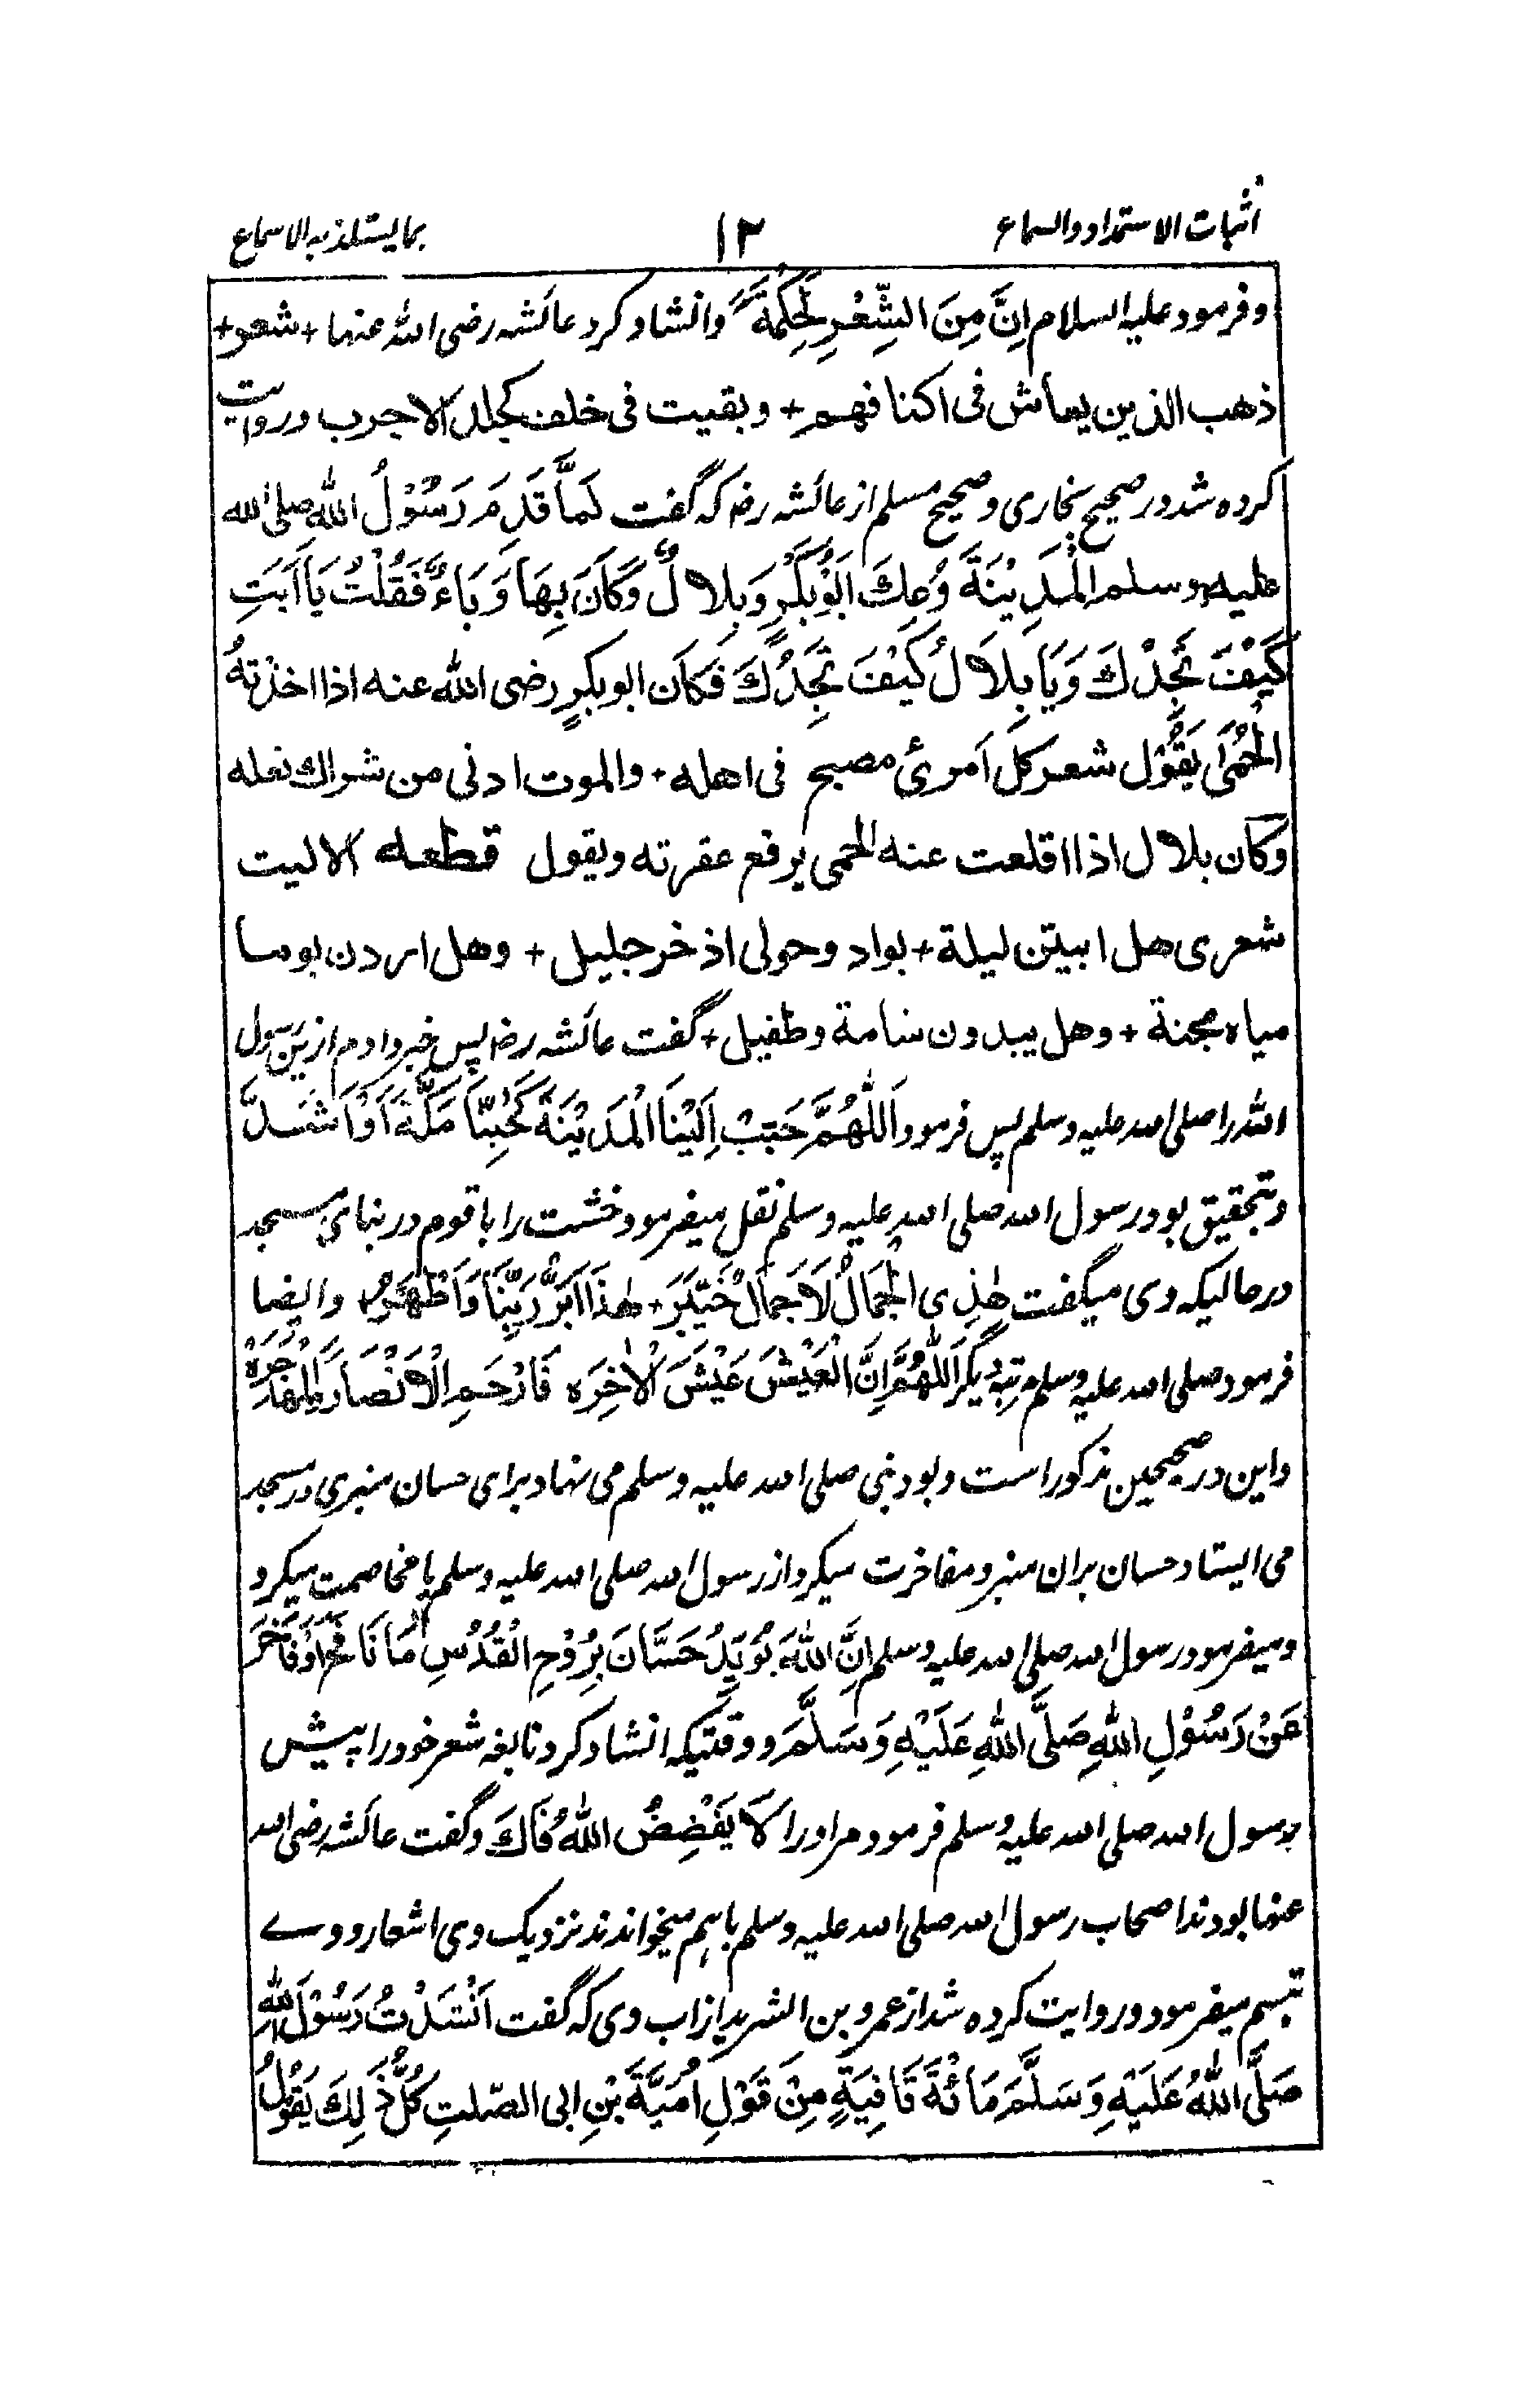 اثبات الاستمداد والسماع ١٢ بما يستلذ به الاسماع
وفرمود علیه السلام اِنَّ مِنَ الشِّعْرِ لَحِكْمَةً وانشاد کرد عائشه رضی الله عنها + شعر +
ذهب الذين يعاش فى اكنافهم + وبقيت فى خلف كجلد الاجرب وروایت
کرده شد در صحیح بخاری وصحیح مسلم از عائشه رض که گفت لَمَّا قَدِمَ رَسُوْلُ اللهِ صلی الله
عليه وسلم الْمَدِيْنَةَ وُعِكَ اَبُوْبَكْرٍ وَبِلَالٌ وَكَانَ بِهَا وَبَاءٌ فَقُلْتُ يَا اَبَتِ
كَيْفَ تَجِدُكَ وَيَا بِلَالُ كَيْفَ تَجِدُكَ فَكَانَ ابوبكرٍ رضى الله عنه اذا اخذته
الْحُمّٰى يَقُوْل شعر كل امرئ مصبح فى اهله + والموت ادنى من شراك نعله
وكان بلال اذا اقلعت عنه الحمى يرفع عقرته ويقول قطعه الا ليت
شعرى هل ابيتن ليلة + بواد وحولى اذخر جليل + وهل اردن يوما
مياه مجنة + وهل يبدون شامة وطفيل + گفت عائشه رض پس خبر دادم ازین رسول
الله را صلی الله علیه وسلم پس فرمود اَللّٰهُمَّ حَبِّبْ اِلَيْنَا الْمَدِيْنَةَ كَحُبِّنَا مَكَّةَ اَوْ اَشَدَّ
وبتحقیق بود رسول الله صلی الله علیه وسلم نقل میفرمود خشت را با قوم در بنای مسجد
در حالیکه وی میگفت هٰذِی الْجَمَالُ لَا جَمَالُ خَيْبَرَ + هٰذَا اَبَرُّ رَبِّنَا وَاَطْهَرُ + وایضا
فرمود صلی الله علیه وسلم مرتبه دیگر اَللّٰهُمَّ اِنَّ الْعَيْشَ عَيْشُ الْاٰخِرَه فَارْحَمِ الْاَنْصَارَ وَالْمُهَاجِرَهْ
واین در صحیحین مذکور است وبود نبی صلی الله علیه وسلم می نهاد برای حسان منبری در مسجد
می ایستاد حسان بران منبر ومفاخرت میکرد از رسول الله صلی الله علیه وسلم یا مخاصمت میکرد
ومیفرمود رسول الله صلی الله علیه وسلم اِنَّ اللهَ يُؤَيِّدُ حَسَّانَ بِرُوْحِ الْقُدُسِ مَا نَافَحَ اَوْ فَاخَرَ
عَنْ رَسُوْلِ اللهِ صَلَّى اللهِ عَلَيْهِ وَسَلَّمَ ووقتیکه انشاد کرد نابغه شعر خود را پیش
رسول الله صلی الله علیه وسلم فرمود مر اورا لَا يَفْضِضُ اللهُ فَاكَ وگفت عائشه رضی الله
عنها بودند اصحاب رسول الله صلی الله علیه وسلم باهم میخواندند نزدیک وی اشعار ووے
تبسم میفرمود وروایت کرده شد از عمرو بن الشرید از اب وی که گفت اَنْشَدْتُ رَسُوْلَ اللهِ
صَلَّى اللهُ عَلَيْهِ وَسَلَّمَ مَائَةَ قَافِيَةٍ مِنْ قَوْلِ اُمَيَّةَ بْنِ ابى الصّلتِ كُلُّ ذٰلِكَ يَقُوْلُ